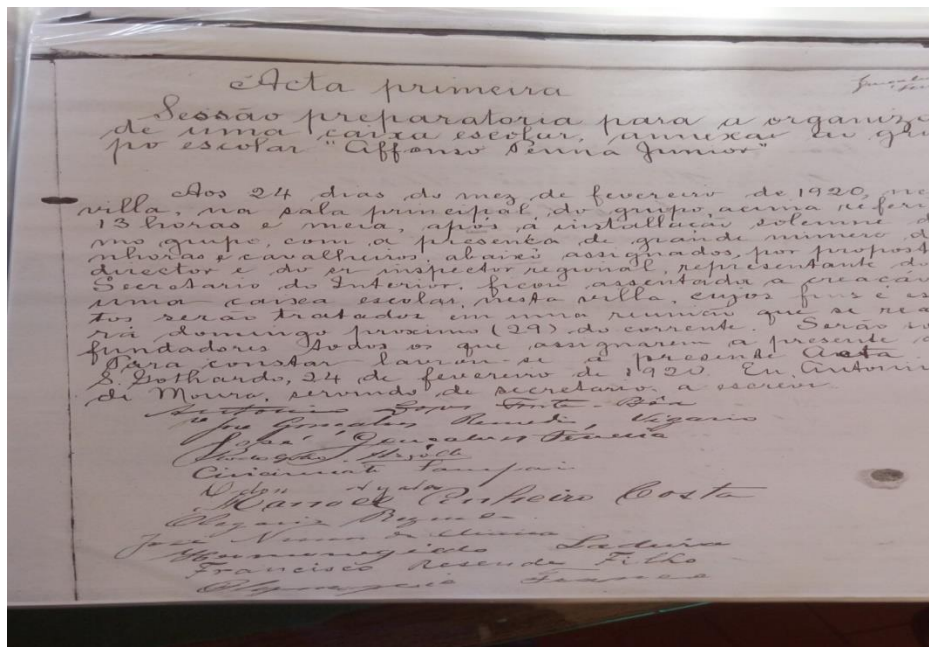 Acta primeira
Sessão preparatoria para a organiza
de uma caixa escolar, annexa ao gru
po escolar "Affonso Penna Junior"
Aos 24 dias do mez de fevereiro de 1920, nes
villa, na sala principal do grupo, acima referi
13 horas e meia, após a installação solemne d
mo grupo, com a presença de grande numero d
nhoras e cavalheiros, abaixo assignados, por propost
director e do sr inspector regional, representante do
Secretario do Interior, ficou assentada a creação
uma caixa escolar, nesta villa, cujos fins e es
tos serão tratados em uma reunião que se rea
rá domingo proximo (29) do corrente. Serão so
fundadores todos os que assignarem a presente a
Para constar lavrou-se a presente Acta
S. Gothardo, 24 de fevereiro de 1920. Eu, Antonio
de Moura, servindo de secretario, a escrevi.
Antonio Lopes Fonte-Bôa
Gonçalves Vigario
José Gonçalves
Cincinnato
Manoel Pinheiro Costa
Olegario
José Nunes de
Hermenegildo Ladeira
Francisco Resende Filho
Olympio Franco